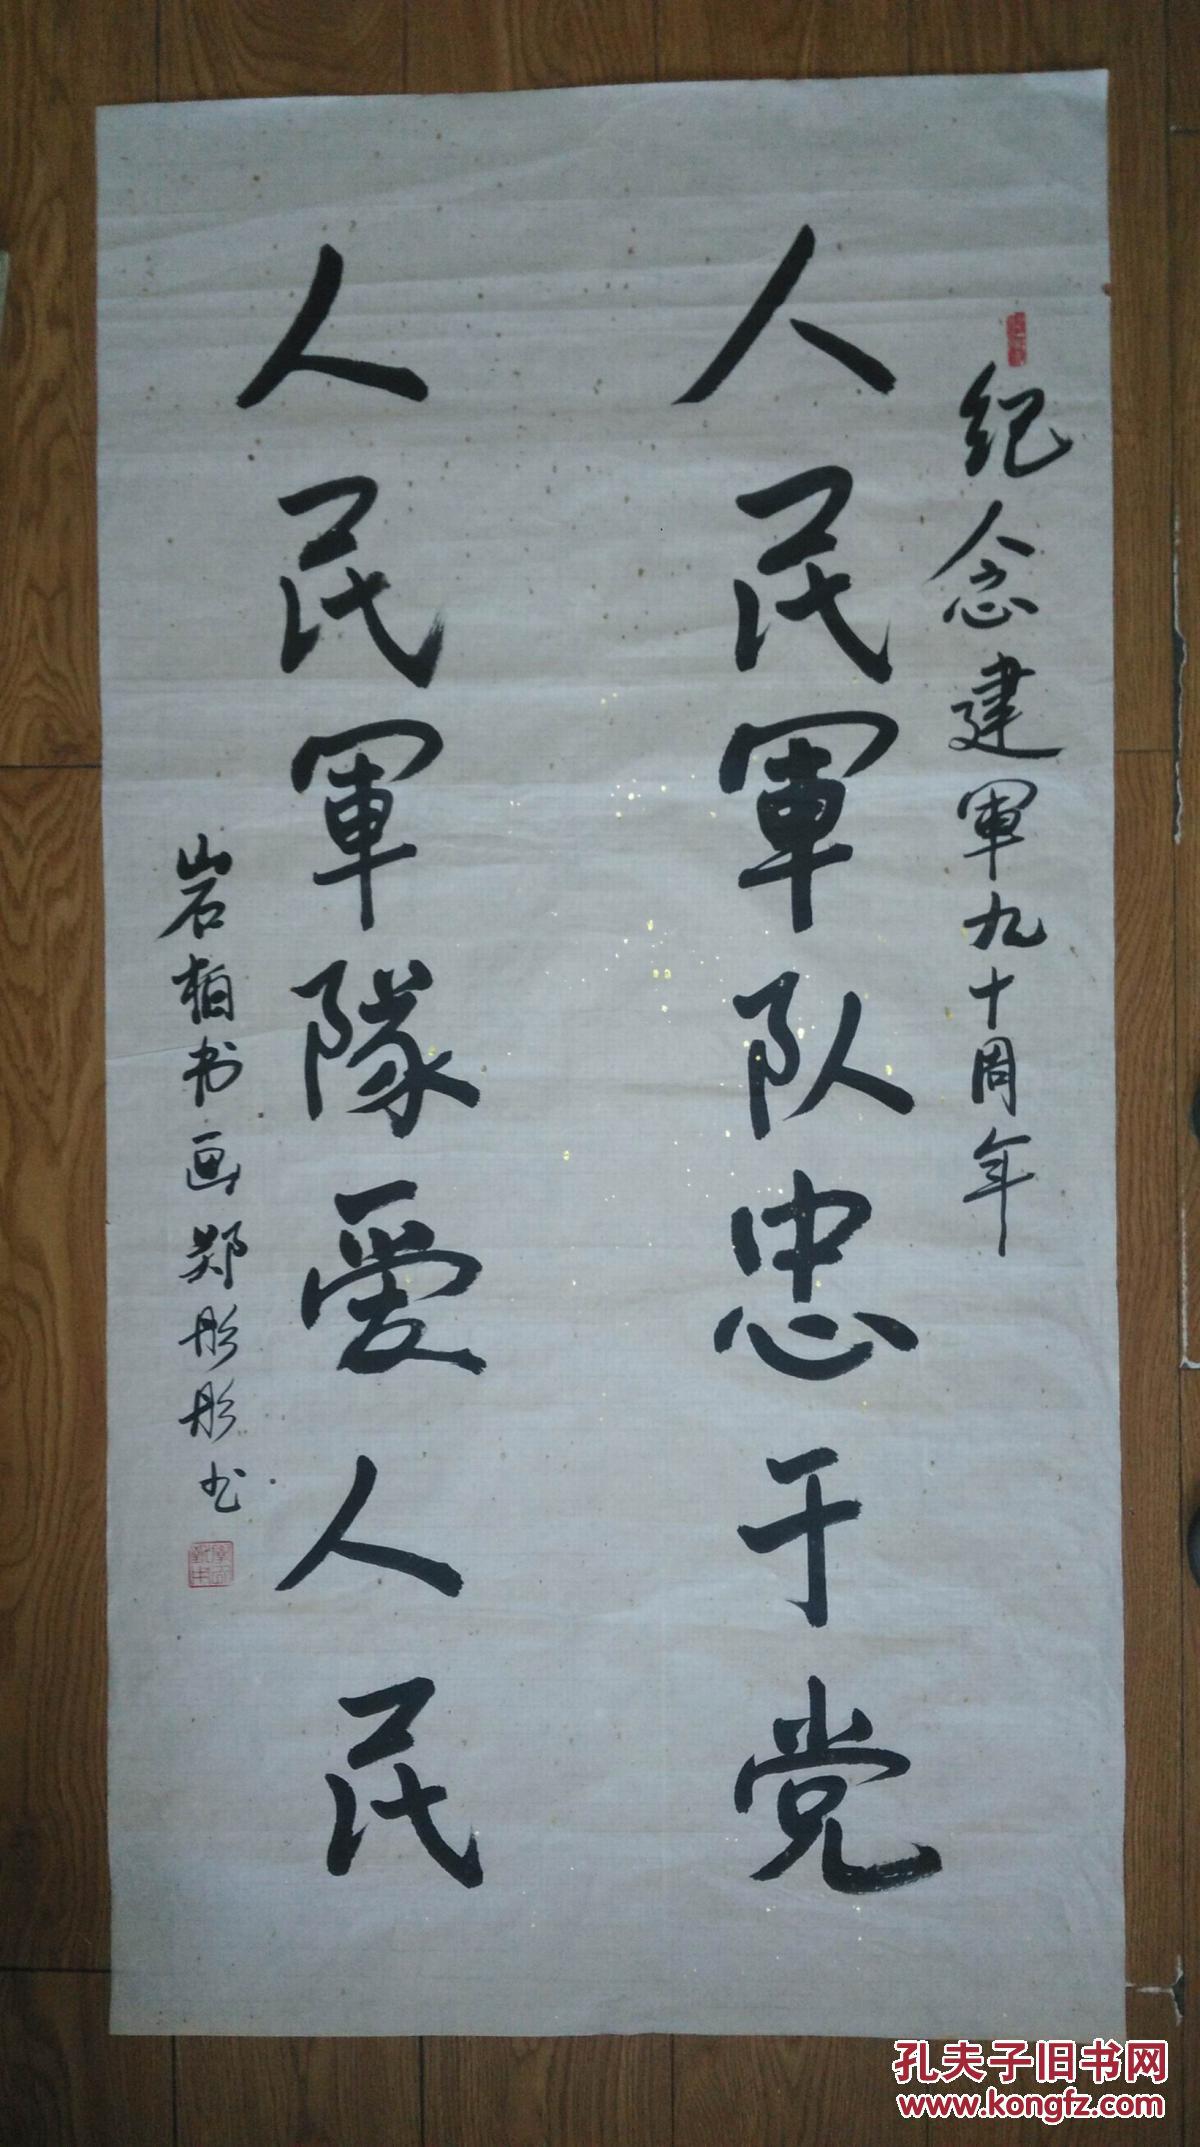 纪念建軍九十周年
人民軍队忠于党
人民軍隊爱人民
岩柏书画郑彤彤书
孔夫子旧书网
www.kongfz.com